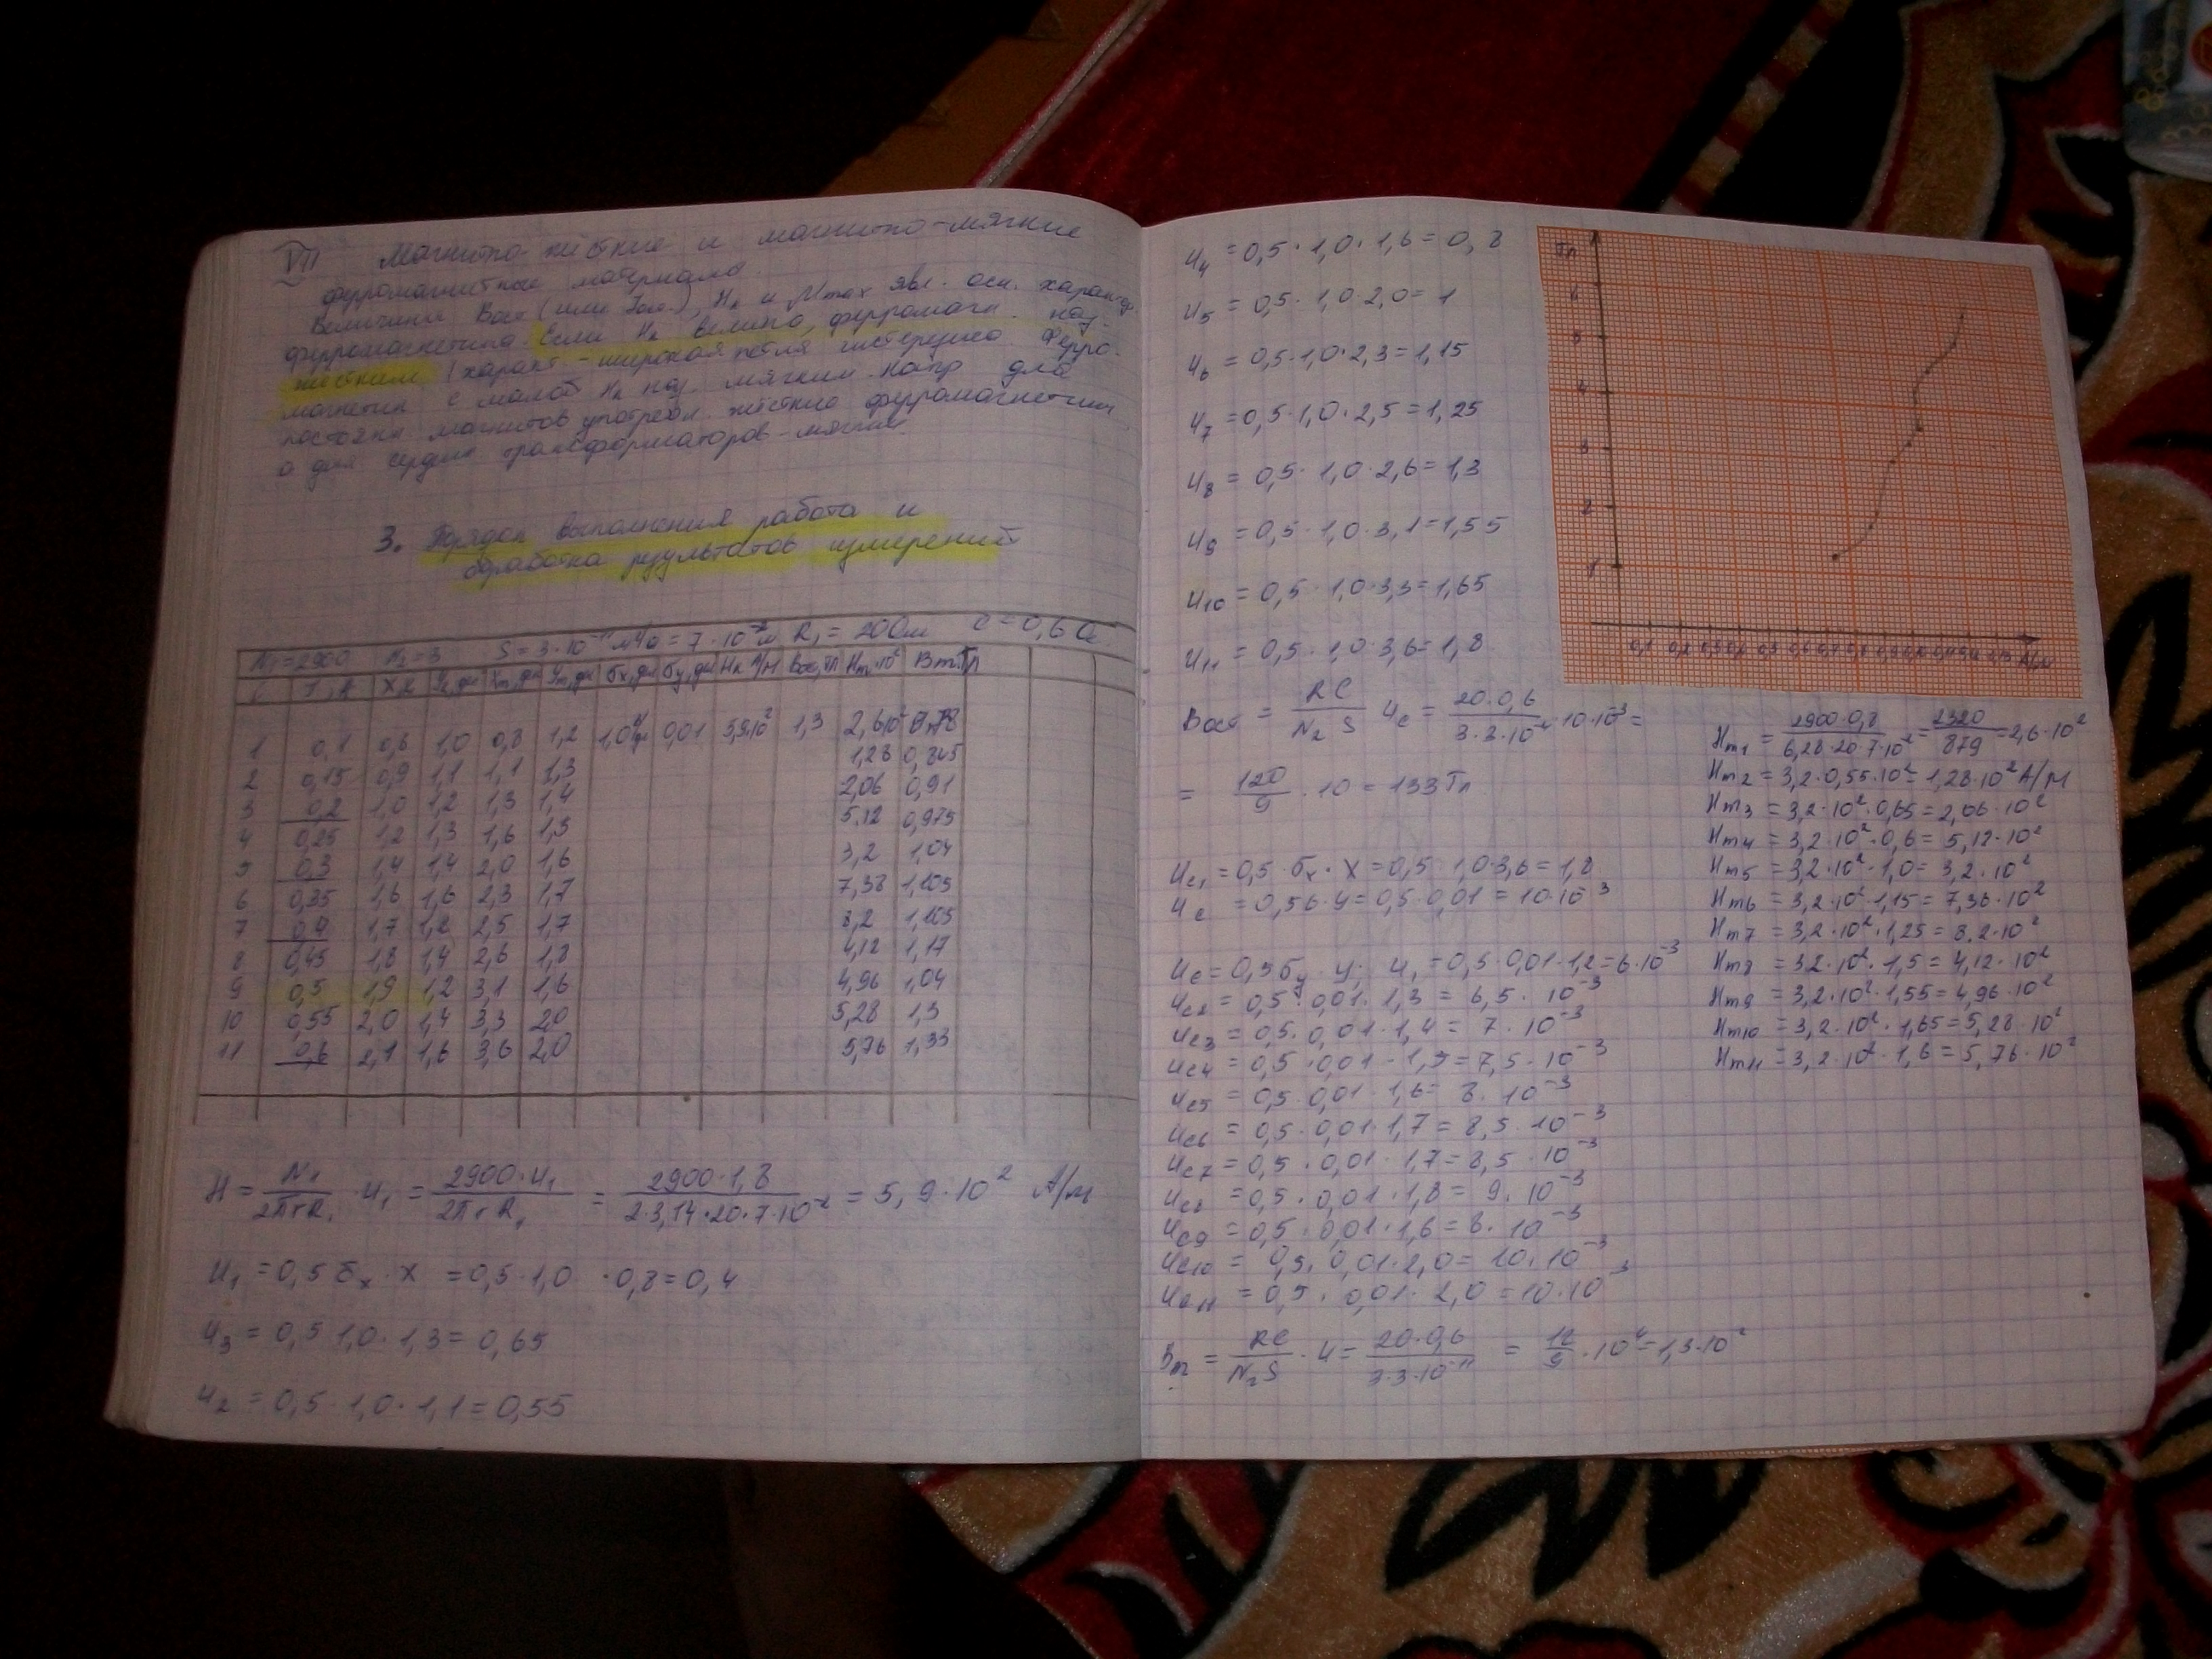 VII Магнито-жёсткие и магнито-мягкие
ферромагнитные материалы.
Величины Вост (или Jост), Нк и Мmax явл. осн. характер.
ферромагнетика. Если Нк велико, ферромагн. наз.
жёстким (характ - широкая петля гистерезиса. Ферро-
магнетик с малой Нк наз. мягким. Напр для
постоян магнитов употребл. жёсткие ферромагнетики
а для сердеч трансформаторов - мягкие.
3. Порядок выполнения работа и
обработка результатов измерений
N₁=2900 N₂=3 S=3·10⁻¹¹ м а=7·10⁻²м R₁=20Ом С=0,6
I, A Нк А/м Вост, Тл Hm·10² Bm, Тл
1 0,1 0,8 1,0 0,8 1,2 0,01 5,9·10² 1,3 2,6·10² 0,78
2 0,15 0,9 1,1 1,1 1,3 1,28 0,845
3 0,2 1,0 1,2 1,3 1,4 2,06 0,91
4 0,25 1,2 1,3 1,6 1,5 5,12 0,975
5 0,3 1,4 1,4 2,0 1,6 3,2 1,04
6 0,35 1,6 1,6 2,3 1,7 7,38 1,105
7 0,4 1,7 1,2 2,5 1,7 8,2 1,105
8 0,45 1,8 1,4 2,6 1,8 4,12 1,17
9 0,5 1,9 1,2 3,1 1,6 4,96 1,04
10 0,55 2,0 1,4 3,3 2,0 5,28 1,3
11 0,6 2,1 1,6 3,6 2,0 5,76 1,33
H = N₁/2πrR₁ · u₁ = 2900·u₁/2πrR₁ = 2900·1,8/2·3,14·20·7·10⁻² = 5,9·10² А/м
u₁ = 0,5 бx · x = 0,5·1,0 ·0,8 = 0,4
u₃ = 0,5 1,0·1,3 = 0,65
u₂ = 0,5·1,0·1,1 = 0,55
u₄ = 0,5·1,0·1,6 = 0,8
u₅ = 0,5·1,0·2,0 = 1
u₆ = 0,5·1,0·2,3 = 1,15
u₇ = 0,5·1,0·2,5 = 1,25
u₈ = 0,5·1,0·2,6 = 1,3
u₉ = 0,5·1,0·3,1 = 1,55
u₁₀ = 0,5·1,0·3,3 = 1,65
u₁₁ = 0,5·1,0·3,6 = 1,8
Тл
6
5
4
3
2
1
А/м
Вост = RC/N₂S uc = 20·0,6/3·3·10⁻⁴ ·10·10⁻³ =
= 120/9 · 10 = 133 Тл
uc₁ = 0,5·бx·x = 0,5 1,0·3,6 = 1,8
uc = 0,5б·y = 0,5·0,01 = 10·10⁻³
uc = 0,5бy·y; u₁ = 0,5·0,01·1,2 = 6·10⁻³
uc₂ = 0,5·0,01·1,3 = 6,5·10⁻³
uc₃ = 0,5·0,01·1,4 = 7·10⁻³
uc₄ = 0,5·0,01·1,5 = 7,5·10⁻³
uc₅ = 0,5·0,01·1,6 = 8·10⁻³
uc₆ = 0,5·0,01·1,7 = 8,5·10⁻³
uc₇ = 0,5·0,01·1,7 = 8,5·10⁻³
uc₈ = 0,5·0,01·1,8 = 9·10⁻³
uc₉ = 0,5·0,01·1,6 = 8·10⁻³
uc₁₀ = 0,5·0,01·2,0 = 10·10⁻³
uc₁₁ = 0,5·0,01·2,0 = 10·10⁻³
Bm = RC/N₂S · u = 20·0,6/3·3·10⁻¹¹ = 12/9·10⁴ = 1,3·10²
Hm₁ = 2900·0,8/6,28·20·7·10⁻² = 2320/879 = 2,6·10²
Hm₂ = 3,2·0,55·10² = 1,28·10² А/М
Hm₃ = 3,2·10²·0,65 = 2,06·10²
Hm₄ = 3,2·10²·0,6 = 5,12·10²
Hm₅ = 3,2·10²·1,0 = 3,2·10²
Hm₆ = 3,2·10²·1,15 = 7,36·10²
Hm₇ = 3,2·10²·1,25 = 8,2·10²
Hm₈ = 3,2·10²·1,5 = 4,12·10²
Hm₉ = 3,2·10²·1,55 = 4,96·10²
Hm₁₀ = 3,2·10²·1,65 = 5,28·10²
Hm₁₁ = 3,2·10²·1,6 = 5,76·10²